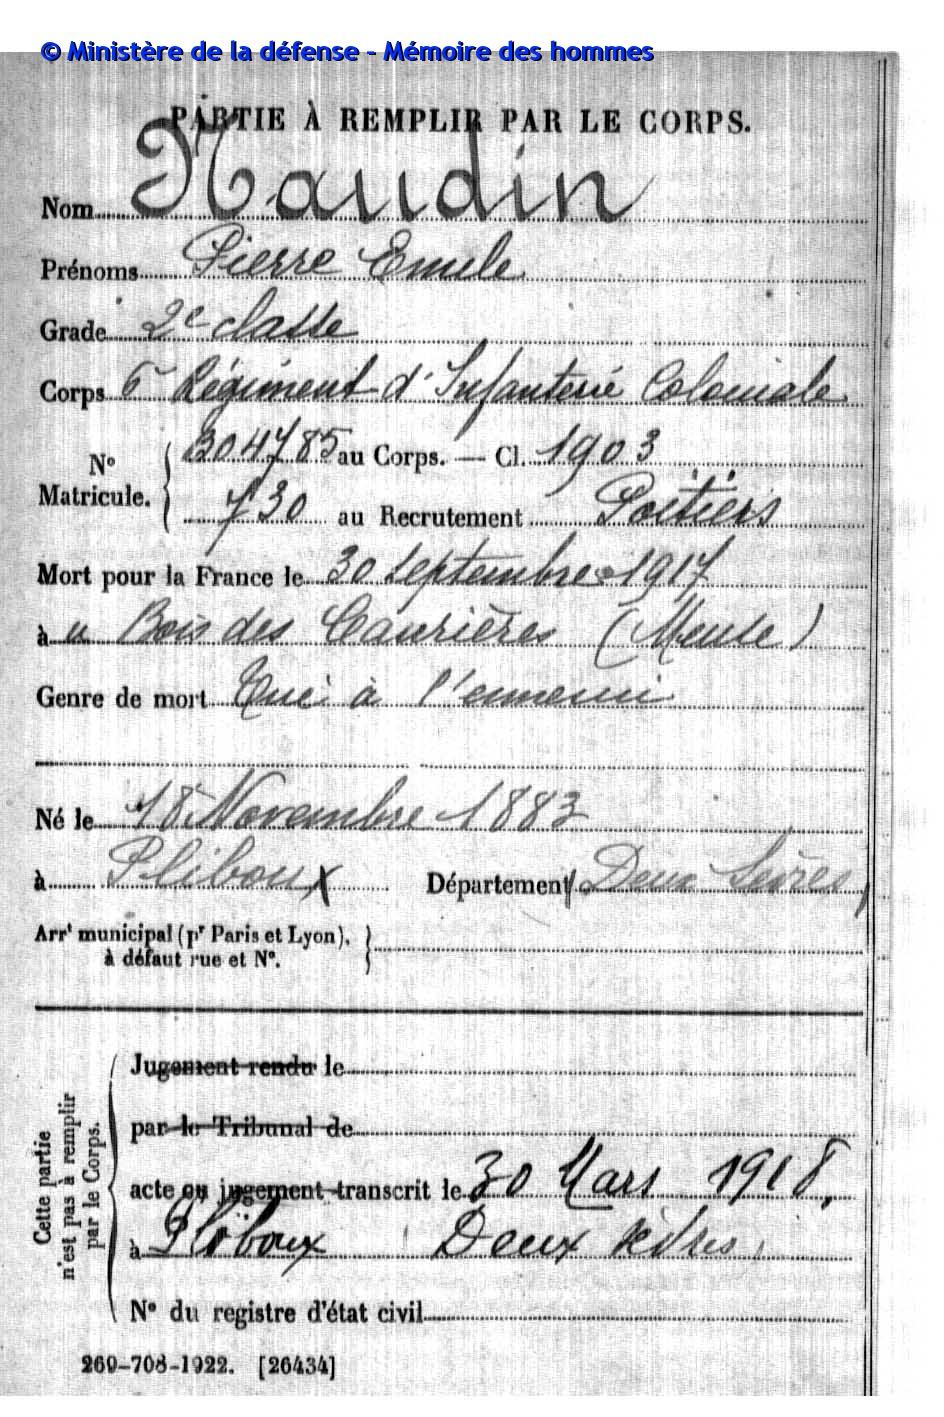 © Ministère de la défense - Mémoire des hommes
PARTIE À REMPLIR PAR LE CORPS.
Nom Naudin
Prénoms Pierre Emile
Grade 2e classe
Corps 6e Régiment d'Infanterie Coloniale
N° Matricule. { 304785 au Corps. — Cl. 1903
730 au Recrutement Poitiers
Mort pour la France le 30 Septembre 1917
à u Bois des Caurières (Meuse)
Genre de mort Tué à l'ennemi
Né le 18 Novembre 1883
à Pliboux Département (Deux Sèvres)
Arrt municipal (pr Paris et Lyon),
à défaut rue et N°.
Cette partie n'est pas à remplir par le Corps.
Jugement rendu le
par le Tribunal de
acte ou jugement transcrit le 30 Mars 1918.
à Pliboux Deux Sèvres
N° du registre d'état civil
269-708-1922. [26434]